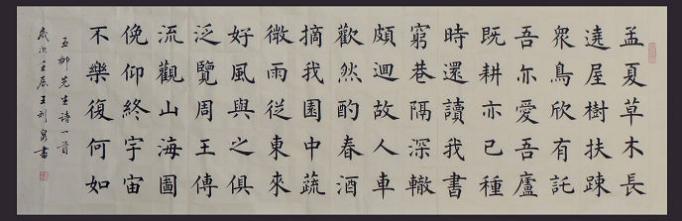 孟夏草木長
遶屋樹扶踈
衆鳥欣有託
吾亦愛吾廬
既耕亦已種
時還讀我書
窮巷隔深轍
頗迴故人車
歡然酌春酒
摘我園中蔬
微雨從東來
好風與之俱
泛覽周王傳
流觀山海圖
俛仰終宇宙
不樂復何如
五柳先生詩一首
歲次壬辰王利
書